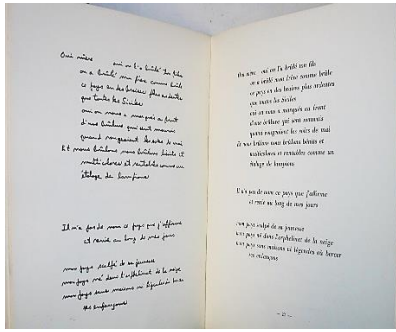 Oui mère oui on l'a brûlé ton fils
on a brûlé mon frère comme brûle
ce pays en des brasiers plus ardents
que toutes les Siciles
oui on nous a marqués au front
d'une brûlure qui sent mauvais
quand rougeoient les soirs de mai
Et nous brûlons nous brûlons bénits et
multicolores et rutilants comme un
étalage de lampions
Il n'a pas de nom ce pays que j'affirme
et renie au long de mes jours
mon pays scalpé de sa jeunesse
mon pays né dans l'orphelinat de la neige
mon pays sans maisons ni légendes où bercer
ses enfançons
Oui mère oui on l'a brûlé ton fils
on a brûlé mon frère comme brûle
ce pays en des brasiers plus ardents
que toutes les Siciles
oui on nous a marqués au front
d'une brûlure qui sent mauvais
quand rougeoient les soirs de mai
Et nous brûlons nous brûlons bénits et
multicolores et rutilants comme un
étalage de lampions
Il n'a pas de nom ce pays que j'affirme
et renie au long de mes jours
mon pays scalpé de sa jeunesse
mon pays né dans l'orphelinat de la neige
mon pays sans maisons ni légendes où bercer
ses enfançons